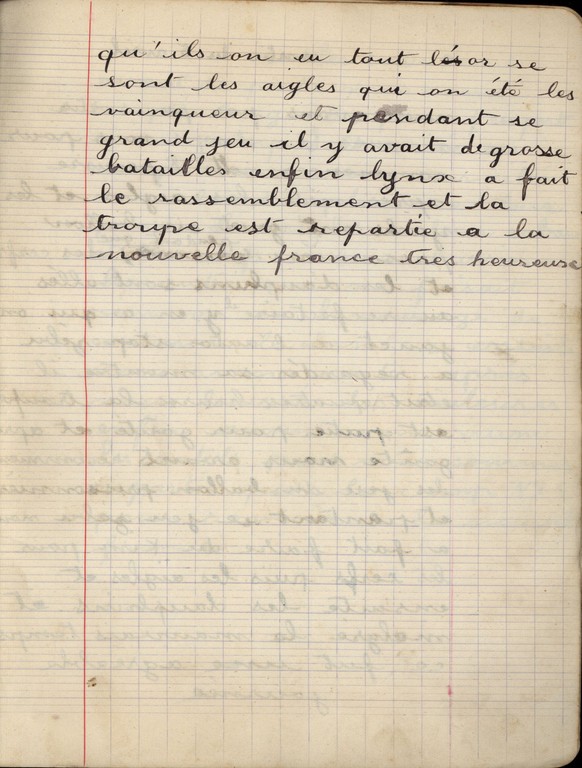 qu'ils on eu tout lésor se
sont les aigles qui on été les
vainqueur et pendant se
grand jeu il y avait de grosse
batailles enfin lynx a fait
le rassemblement et la
troupe est repartie a la
nouvelle france tres heureuse